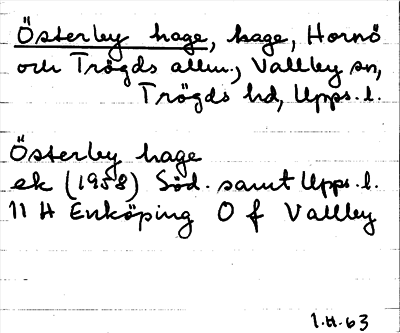 Österby hage, hage, Hornö
och Trögds allm., Vallby sn,
Trögds hd, Upps. l.
Österby hage
ek (1958) Söd. samt Upps. l.
11 H Enköping 0 f Vallby
1.H.63